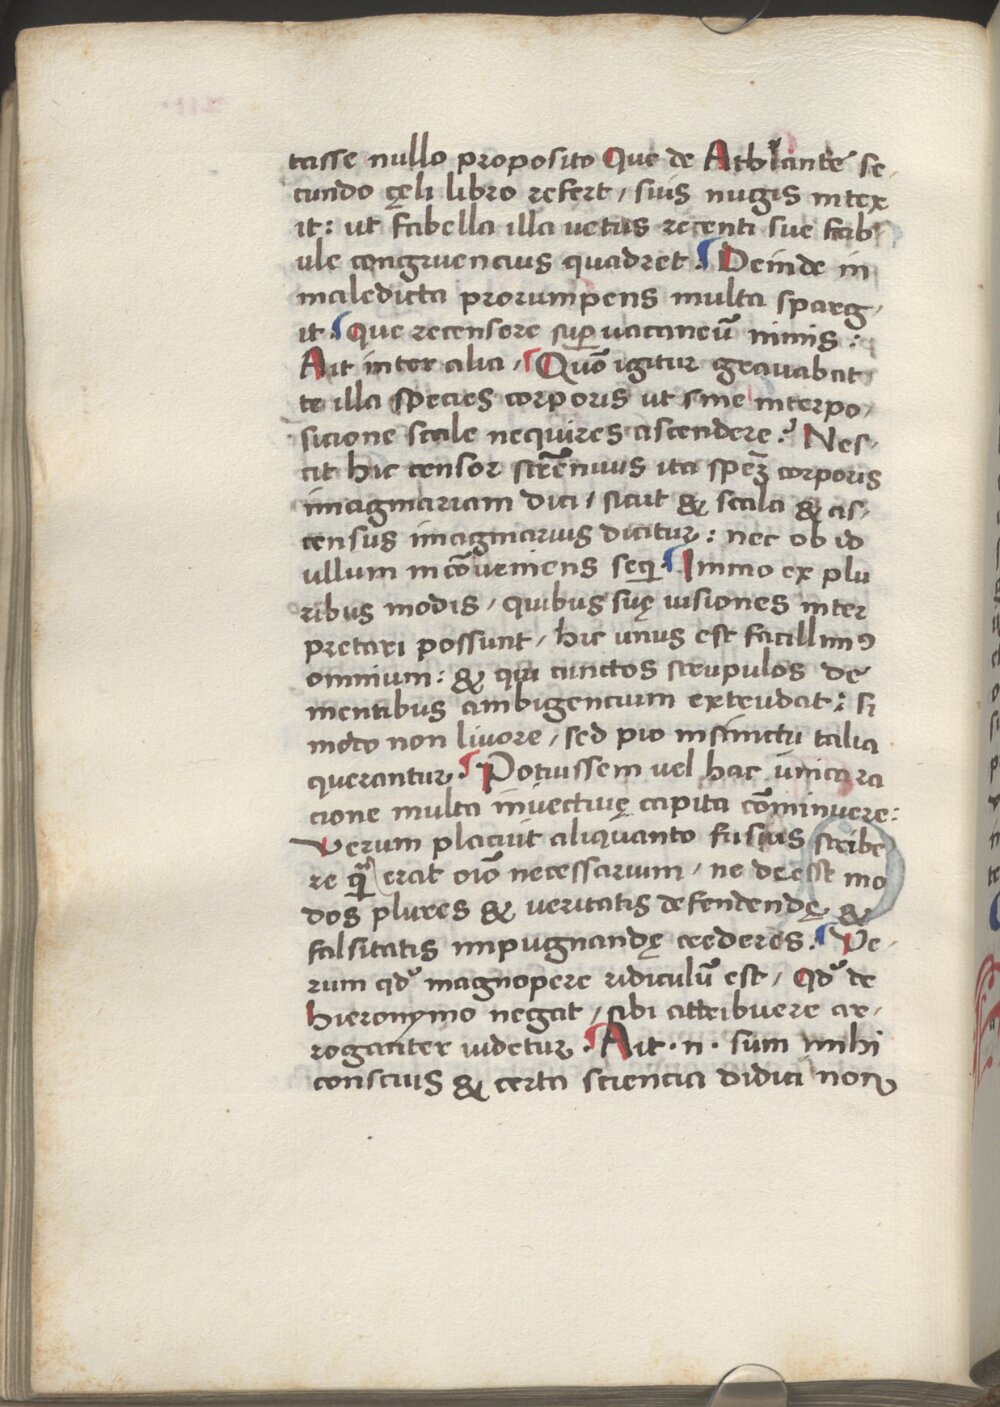 tasse nullo proposito Que de Athlante se,
cundo cęli libro refert / suis nugis intex
it: ut fabella illa uetus recenti sue fab,
ule congruencius quadret. Deinde in
maledicta prorumpens multa sparg,
it. Que recensere suꝑuacaneū nimis:
Ait inter alia / Quō igitur grauabat
te illa species corporis ut sine interpo,
sicione scale nequires ascendere? Nes,
cit hic censor strēnuus ita speꝫ corporis
imaginariam dici / sicut & scala & as,
census imaginarius dicitur: nec ob id
ullum incōueniens seqi. Immo ex plu
ribus modis / quibus suę uisiones inter
pretari possunt / hic unus est facillimꝰ
omnium: & qui cunctos scrupulos de
mentibus ambigencium extrudat: si
modo non liuore / sed pio instinctu talia
querantur. Potuissem uel hac unica ra
cione multa inuectiuę capita cōminuere:
Verum placuit aliquanto fusius scribe
re q̄ erat oīo necessarium / ne deesse mo
dos plures & ueritatis defendendę &
falsitatis impugnandę crederes. Ve,
rum qd' magnopere ridiculū est / Qd' de
hieronymo negat / sibi attribuere ar,
roganter uidetur. Ait .n. sum mihi
conscius & certa sciencia didici non